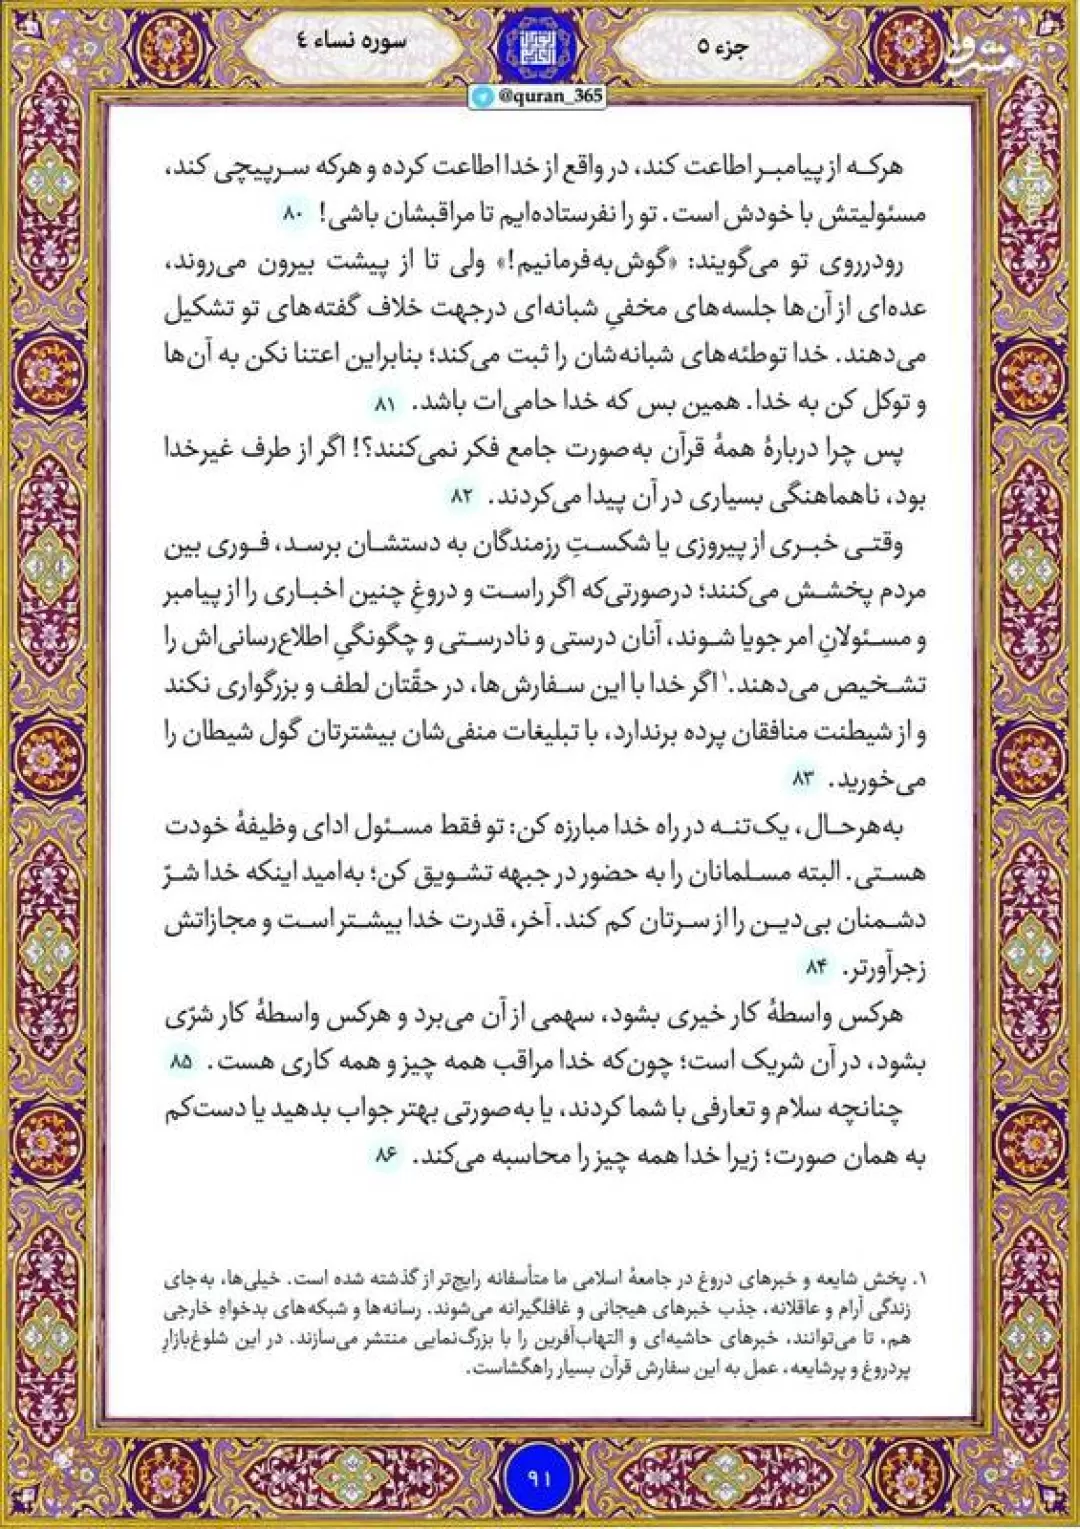 جزء ۵
سوره نساء ٤
@quran_365
مشرق
هرکه از پیامبر اطاعت کند، در واقع از خدا اطاعت کرده و هرکه سرپیچی کند،
مسئولیتش با خودش است. تو را نفرستاده‌ایم تا مراقبشان باشی! ۸۰
رودرروی تو می‌گویند: «گوش‌به‌فرمانیم!» ولی تا از پیشت بیرون می‌روند،
عده‌ای از آن‌ها جلسه‌های مخفیِ شبانه‌ای درجهت خلاف گفته‌های تو تشکیل
می‌دهند. خدا توطئه‌های شبانه‌شان را ثبت می‌کند؛ بنابراین اعتنا نکن به آن‌ها
و توکل کن به خدا. همین بس که خدا حامی‌ات باشد. ۸۱
پس چرا دربارهٔ همهٔ قرآن به‌صورت جامع فکر نمی‌کنند؟! اگر از طرف غیرخدا
بود، ناهماهنگی بسیاری در آن پیدا می‌کردند. ۸۲
وقتی خبری از پیروزی یا شکستِ رزمندگان به دستشان برسد، فوری بین
مردم پخشش می‌کنند؛ درصورتی‌که اگر راست و دروغِ چنین اخباری را از پیامبر
و مسئولانِ امر جویا شوند، آنان درستی و نادرستی و چگونگیِ اطلاع‌رسانی‌اش را
تشخیص می‌دهند.۱ اگر خدا با این سفارش‌ها، در حقّتان لطف و بزرگواری نکند
و از شیطنت منافقان پرده برندارد، با تبلیغات منفی‌شان بیشترتان گول شیطان را
می‌خورید. ۸۳
به‌هرحال، یک‌تنه در راه خدا مبارزه کن: تو فقط مسئول ادای وظیفهٔ خودت
هستی. البته مسلمانان را به حضور در جبهه تشویق کن؛ به‌امید اینکه خدا شرّ
دشمنان بی‌دین را از سرتان کم کند. آخر، قدرت خدا بیشتر است و مجازاتش
زجرآورتر. ۸۴
هرکس واسطهٔ کار خیری بشود، سهمی از آن می‌برد و هرکس واسطهٔ کار شرّی
بشود، در آن شریک است؛ چون‌که خدا مراقب همه چیز و همه کاری هست. ۸۵
چنانچه سلام و تعارفی با شما کردند، یا به‌صورتی بهتر جواب بدهید یا دست‌کم
به همان صورت؛ زیرا خدا همه چیز را محاسبه می‌کند. ۸۶
۱. پخش شایعه و خبرهای دروغ در جامعهٔ اسلامی ما متأسفانه رایج‌تر از گذشته شده است. خیلی‌ها، به‌جای
زندگی آرام و عاقلانه، جذب خبرهای هیجانی و غافلگیرانه می‌شوند. رسانه‌ها و شبکه‌های بدخواهِ خارجی
هم، تا می‌توانند، خبرهای حاشیه‌ای و التهاب‌آفرین را با بزرگ‌نمایی منتشر می‌سازند. در این شلوغ‌بازارِ
پردروغ و پرشایعه، عمل به این سفارش قرآن بسیار راهگشاست.
۹۱